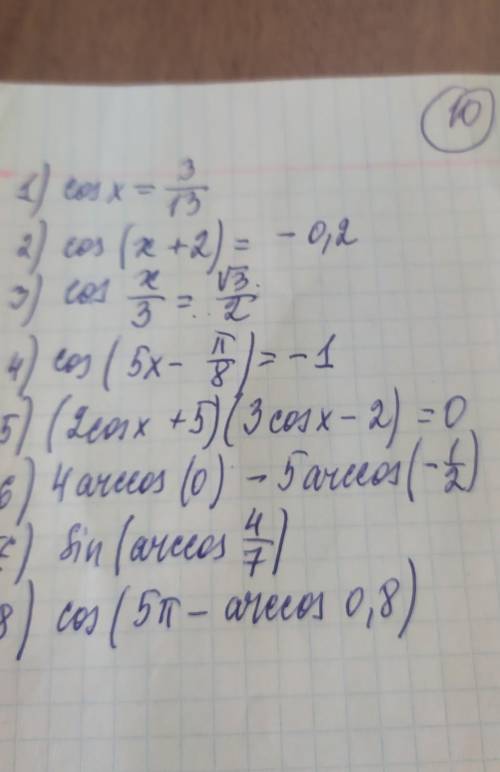 10
1) cos x = 3/13
2) cos (x + 2) = - 0,2
3) cos x/3 = √3/2
4) cos (5x - π/8) = - 1
5) (2cosx + 5)(3cosx - 2) = 0
6) 4 arccos (0) - 5 arccos (- 1/2)
7) sin (arccos 4/7)
8) cos (5π - arccos 0,8)